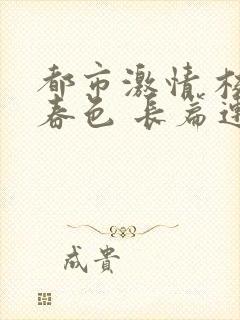 都市激情 校
春色 长篇连
成贵